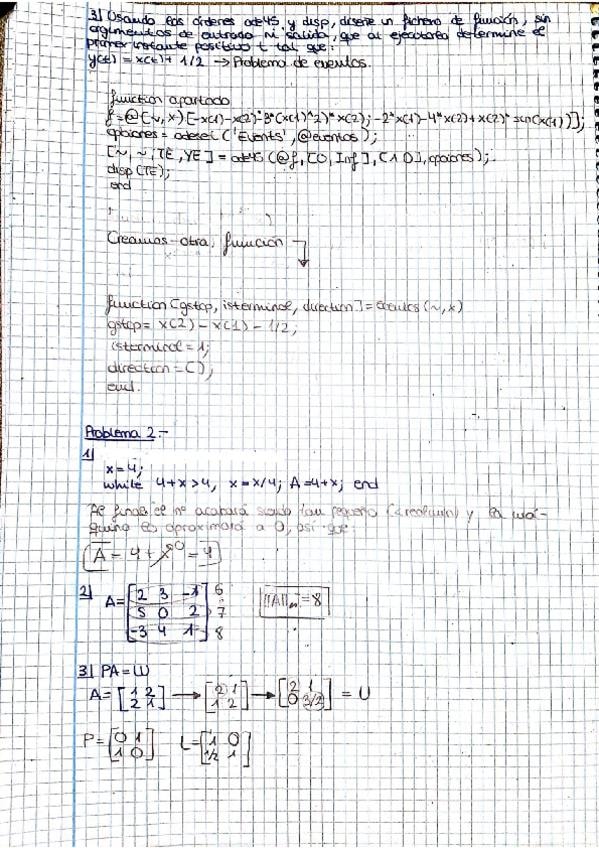 3) Usando las órdenes ode45 y disp, diseñe un fichero de función, sin
argumentos de entrada ni salida, que al ejecutarlo determine el
primer instante positivo t tal que:
y(t) = x(t) + 1/2 → Problema de eventos.
function apartado
f=@(~,x)[-x(1)-x(2)-3*(x(1)^2)*x(2);-2*x(1)-4*x(2)+x(2)*sin(x(1))];
opciones = odeset('Events',@eventos);
[~,~,TE,YE] = ode45(@f,[0,Inf],[1 0],opciones);
disp(TE);
end
Creamos otra función
function [gstop, isterminal, direction] = eventos(~,x)
gstop= x(2)-x(1)-1/2;
isterminal=1;
direction=[];
end.
Problema 2.-
1)
x=4;
while 4+x>4, x=x/4; A=4+x; end
Al final el x acabará siendo tan pequeño y la má-
quina lo aproximará a 0, así que:
A = 4 + x⁰ = 4
2) A= [2 3 -1; 5 0 2; -3 4 1] 6 7 8 ||A||∞ = 8
3) PA=LU
A= [1 2; 2 1] → [2 1; 1 2] → [2 1; 0 3/2] = U
P= [0 1; 1 0] L= [1 0; 1/2 1]